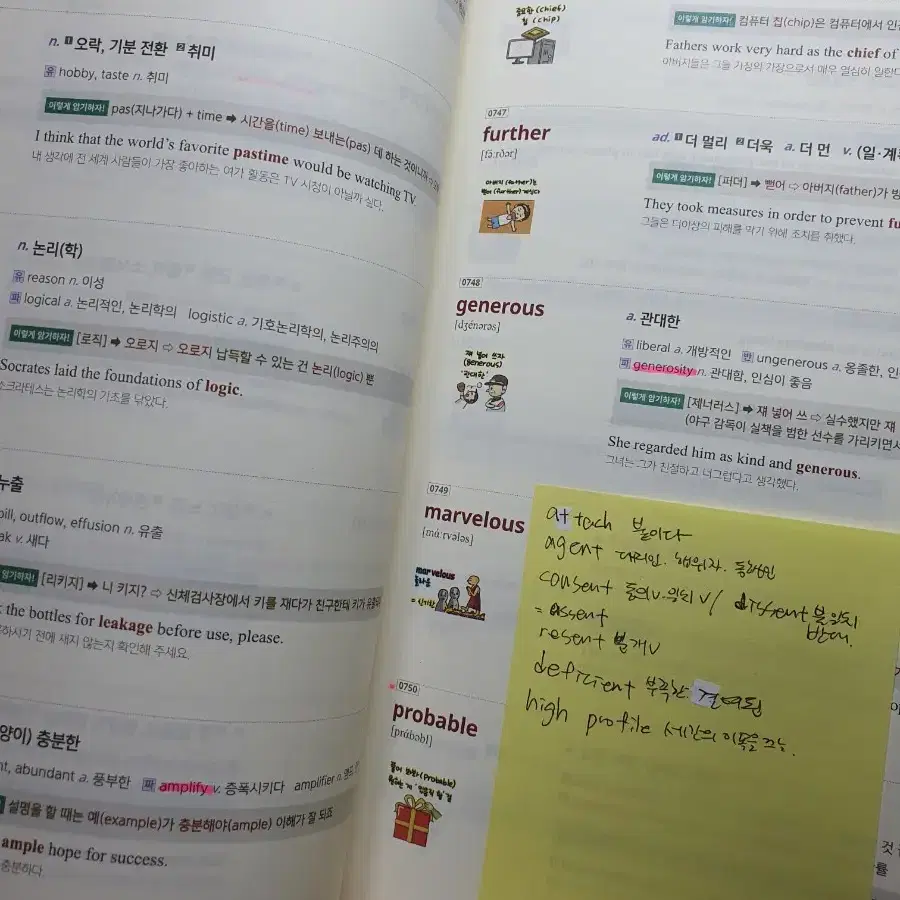 n. 1 오락, 기분 전환 2 취미
유 hobby, taste n. 취미
이렇게 암기하자! pas(지나가다) + time ➡ 시간을(time) 보내는(pas) 데 하는 것이니까
I think that the world's favorite pastime would be watching TV.
내 생각에 전 세계 사람들이 가장 좋아하는 여가 활동은 TV 시청이 아닐까 싶다.
n. 논리(학)
유 reason n. 이성
파 logical a. 논리적인, 논리학의 logistic a. 기호논리학의, 논리주의의
이렇게 암기하자! [로직] ➡ 오로지 ⇨ 오로지 납득할 수 있는 건 논리(logic) 뿐
Socrates laid the foundations of logic.
소크라테스는 논리학의 기초를 닦았다.
누출
pill, outflow, effusion n. 유출
ak v. 새다
암기하자! [리키지] ➡ 니 키지? ⇨ 신체검사장에서 키를 재다가 친구한테 키가
the bottles for leakage before use, please.
하시기 전에 새지 않는지 확인해 주세요.
양이) 충분한
nt, abundant a. 풍부한 파 amplify v. 증폭시키다 amplifier n.
설명을 할 때는 예(example)가 충분해야(ample) 이해가 잘 되죠
ample hope for success.
충분하다.
중요한 (chief)
칩 (chip)
이렇게 암기하자! 컴퓨터 칩(chip)은 컴퓨터에서
Fathers work very hard as the chief of
아버지들은 그들 가정의 가장으로서 매우 열심히 일한다
0747
further
[fə́ːrðər]
아버지 (father)는
뻗어 (further) 계신다
ad. 1 더 멀리 2 더욱 a. 더 먼 v. (일·계획
이렇게 암기하자! [퍼더] ➡ 뻗어 ⇨ 아버지(father)가
They took measures in order to prevent fu
그들은 더이상의 피해를 막기 위해 조치를 취했다.
0748
generous
[dʒénərəs]
쟤 넣어 쓰자
(generous)
'관대한'
a. 관대한
유 liberal a. 개방적인 반 ungenerous a. 옹졸한,
파 generosity n. 관대함, 인심이 좋음
이렇게 암기하자! [제너러스] ➡ 쟤 넣어 쓰 ⇨ 실수했지만 쟤
(야구 감독이 실책을 범한 선수를 가리키면서
She regarded him as kind and generous.
그녀는 그가 친절하고 너그럽다고 생각했다.
0749
marvelous
[mɑ́ːrvələs]
marvelous
놀라운
0750
probable
[prɑ́bəbl]
(probable)
attach 붙이다
agent 대리인. 행위자.
consent 동의v. / dissent 불일치
반대.
= assent
resent 분개v
deficient 부족한 결여된
high profile 세간의 이목을 끄는.